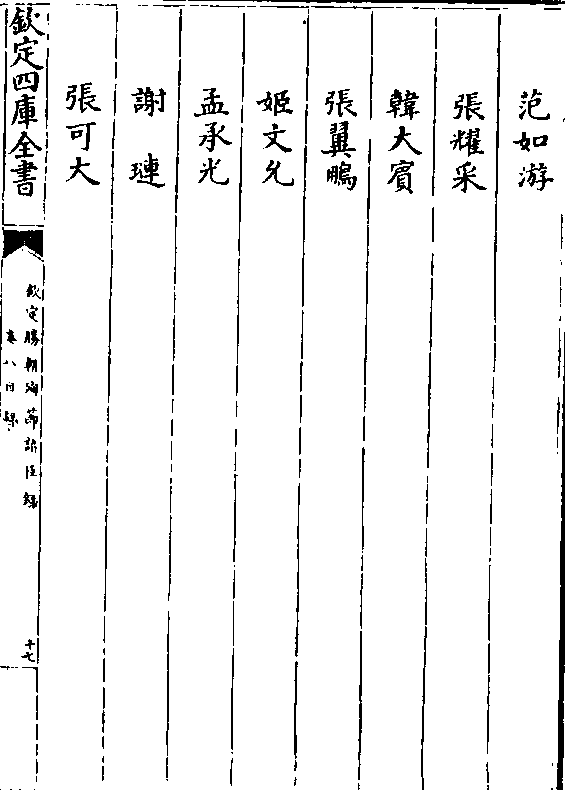 范如游
張耀采
韓大賓
張翼鵬
姬文允
孟承光
謝璉
張可大
欽定四庫全書
欽定勝朝殉節諸臣録
卷八目録
十七